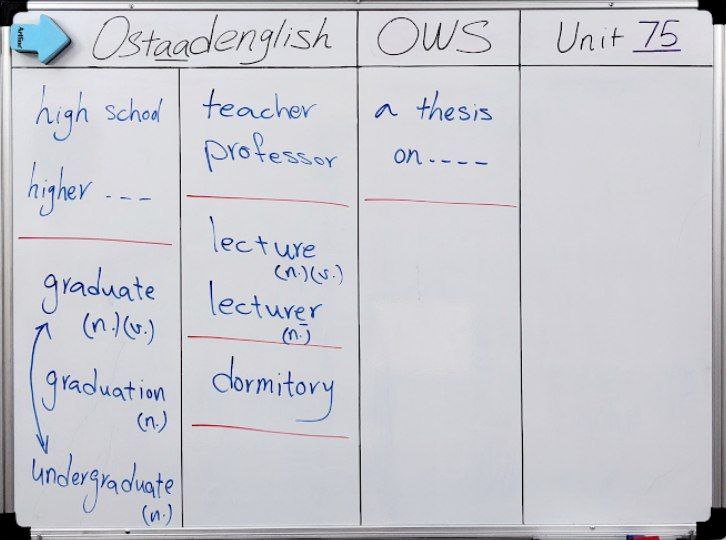 Ostaadenglish
OWS
Unit 75
high school
higher ---
graduate
(n.)(v.)
graduation
(n.)
undergraduate
(n.)
teacher
professor
lecture
(n.)(v.)
lecturer
(n.)
dormitory
a thesis
on----